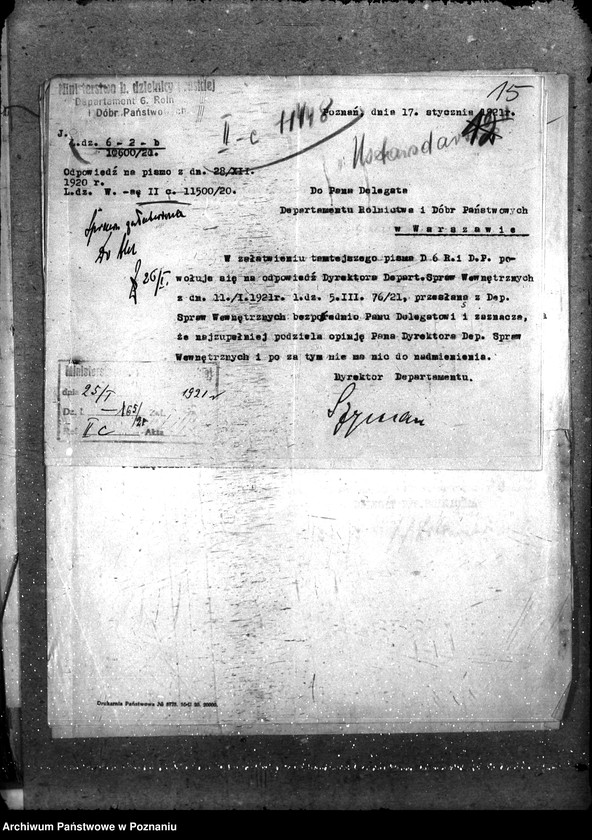 15
Ministerstwo b. dzielnicy pruskiej
Departament 6. Roln
i Dóbr Państwowych
Poznań, dnia 17. stycznia 1921r.
II-c
42
L.dz. 6 - 2 - b
10600/21.
Odpowiedź na pismo z dn. 28/XII.
1920 r.
L.dz. W. -sę II c. 11500/20.
Do Pana Delegata
Departamentu Rolnictwa i Dóbr Państwowych
w Warszawie
26/I.
W załatwieniu tamtejszego pisma D.6 R.i D.P. po-
wołuje się na odpowiedź Dyrektora Depart.Spraw Wewnętrznych
z dn. 11./I.1921r. l.dz. 5.III. 76/21, przesłaną z Dep.
Spraw Wewnętrznych bezpośrednio Panu Delegatowi i zaznacza,
że najzupełniej podziela opinję Pana Dyrektora Dep. Spraw
Wewnętrznych i po za tym nie ma nic do nadmienienia.
Dyrektor Departamentu.
Szyman
Ministerstwo
dnia 25/I 1921 r
Dz. I. 165/21 Zał.
Ref. II c Akta
Drukarnia Państwowa № 5775.
Archiwum Państwowe w Poznaniu